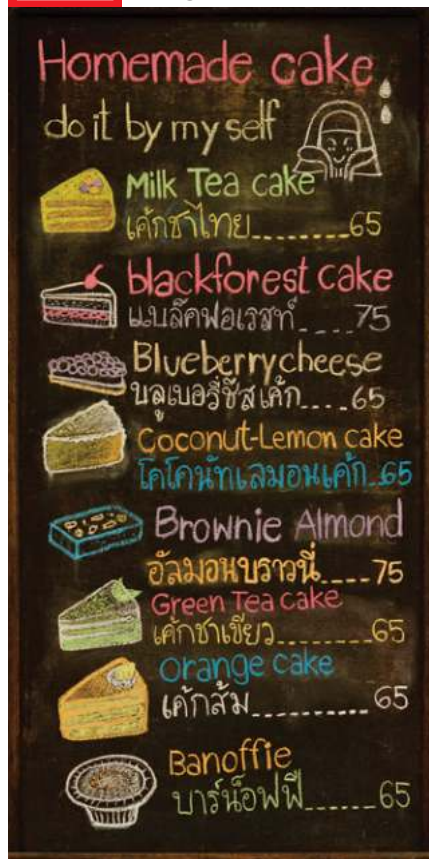 Homemade cake
do it by my self
Milk Tea cake
เค้กชาไทย........65
blackforest cake
แบล๊คฟอเรสท์....75
Blueberrycheese
บลูเบอรี่ชีสเค้ก....65
Coconut-Lemon cake
โคโคนัทเลมอนเค้ก..65
Brownie Almond
อัลมอนบราวนี่....75
Green Tea cake
เค้กชาเขียว........65
orange cake
เค้กส้ม..........65
Banoffie
บาร์น็อฟฟี......65